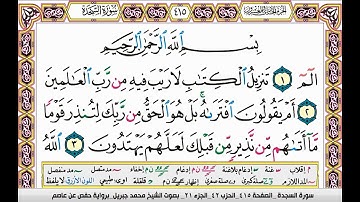 سورة السجدة
٤١٥
بسم الله الرحمن الرحيم
الٓمٓ ١ تَنزِيلُ ٱلْكِتَٰبِ لَا رَيْبَ فِيهِ مِن رَّبِّ ٱلْعَٰلَمِينَ
٢ أَمْ يَقُولُونَ ٱفْتَرَىٰهُ ۚ بَلْ هُوَ ٱلْحَقُّ مِن رَّبِّكَ لِتُنذِرَ قَوْمًا
مَّآ أَتَىٰهُم مِّن نَّذِيرٍ مِّن قَبْلِكَ لَعَلَّهُمْ يَهْتَدُونَ ٣ ٱللَّهُ
سورة السجدة, الصفحة ٤١٥ الحزب ٤٢, الجزء ٢١, بصوت الشيخ محمد جبريل, برواية حفص عن عاصم